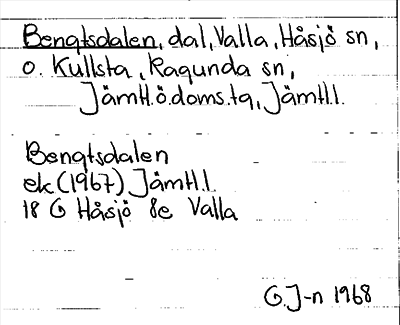 Bengtsdalen, dal, Valla, Håsjö sn,
o. Kullsta, Ragunda sn,
Jämtl.ö.doms.tg, Jämtl.l.
Bengtsdalen
ek (1967) Jämtl.l.
18 G Håsjö 8e Valla
G.J-n 1968